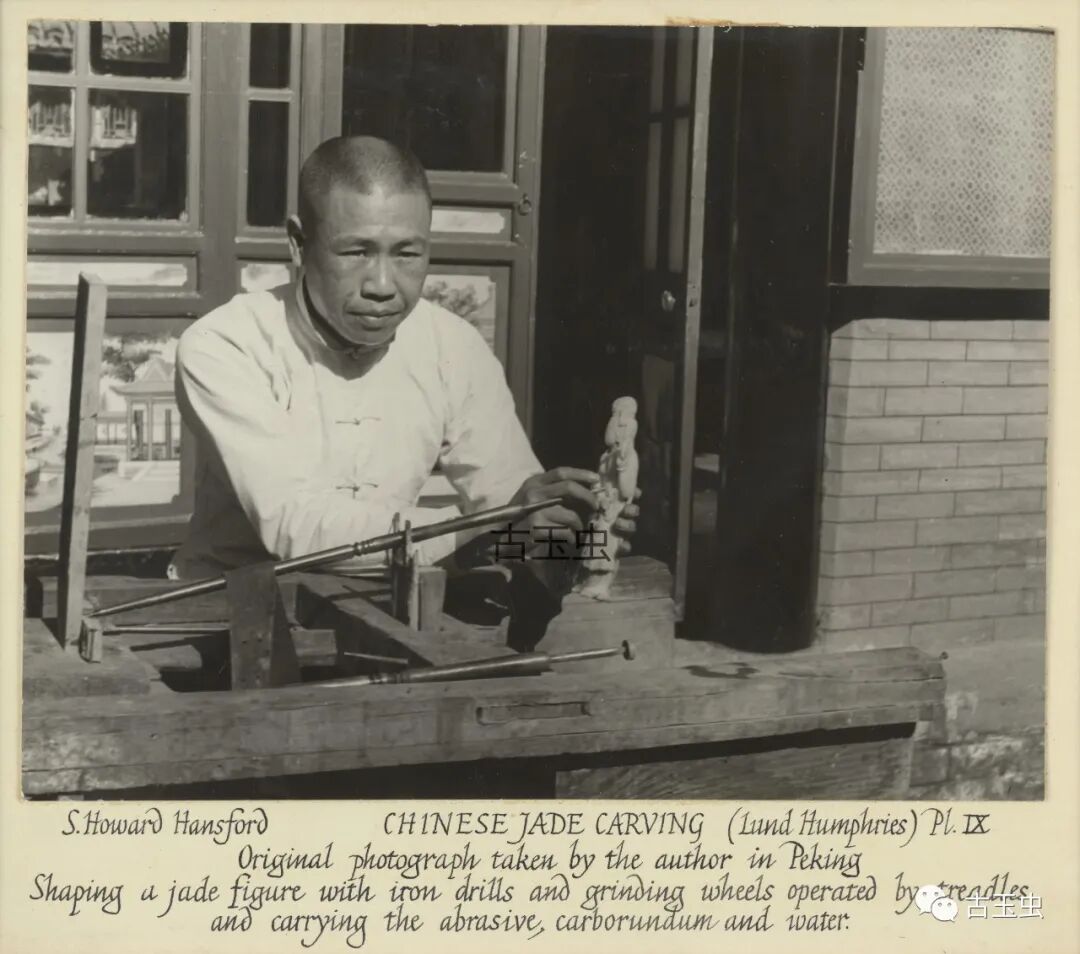 古玉虫
S. Howard Hansford CHINESE JADE CARVING (Lund Humphries) Pl. IX
Original photograph taken by the author in Peking
Shaping a jade figure with iron drills and grinding wheels operated by treadles
and carrying the abrasive, carborundum and water.
古玉虫